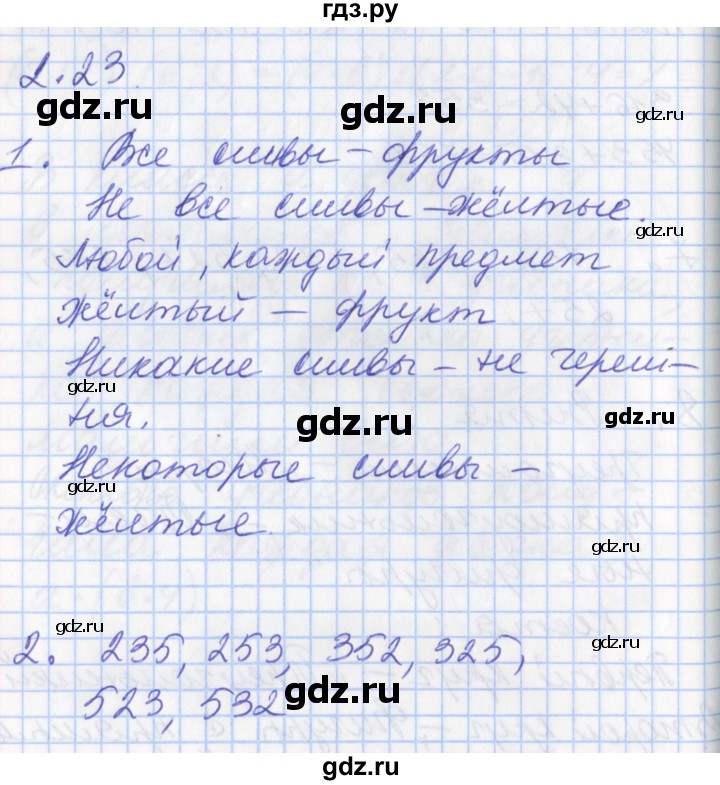 гдз.ру
2.23
gdz.ru gdz.ru
1. Все сливы – фрукты
gdz.ru
Не все сливы – жёлтые.
gdz.ru
Любой, каждый предмет
жёлтый – фрукт
Никакие сливы – не череш-
gdz.ru
ня.
gdz.ru gdz.ru
Некоторые сливы –
gdz.ru
жёлтые.
gdz.ru
gdz.ru gdz.ru
2. 235, 253, 352, 325,
523, 532
gdz.ru
gdz.ru